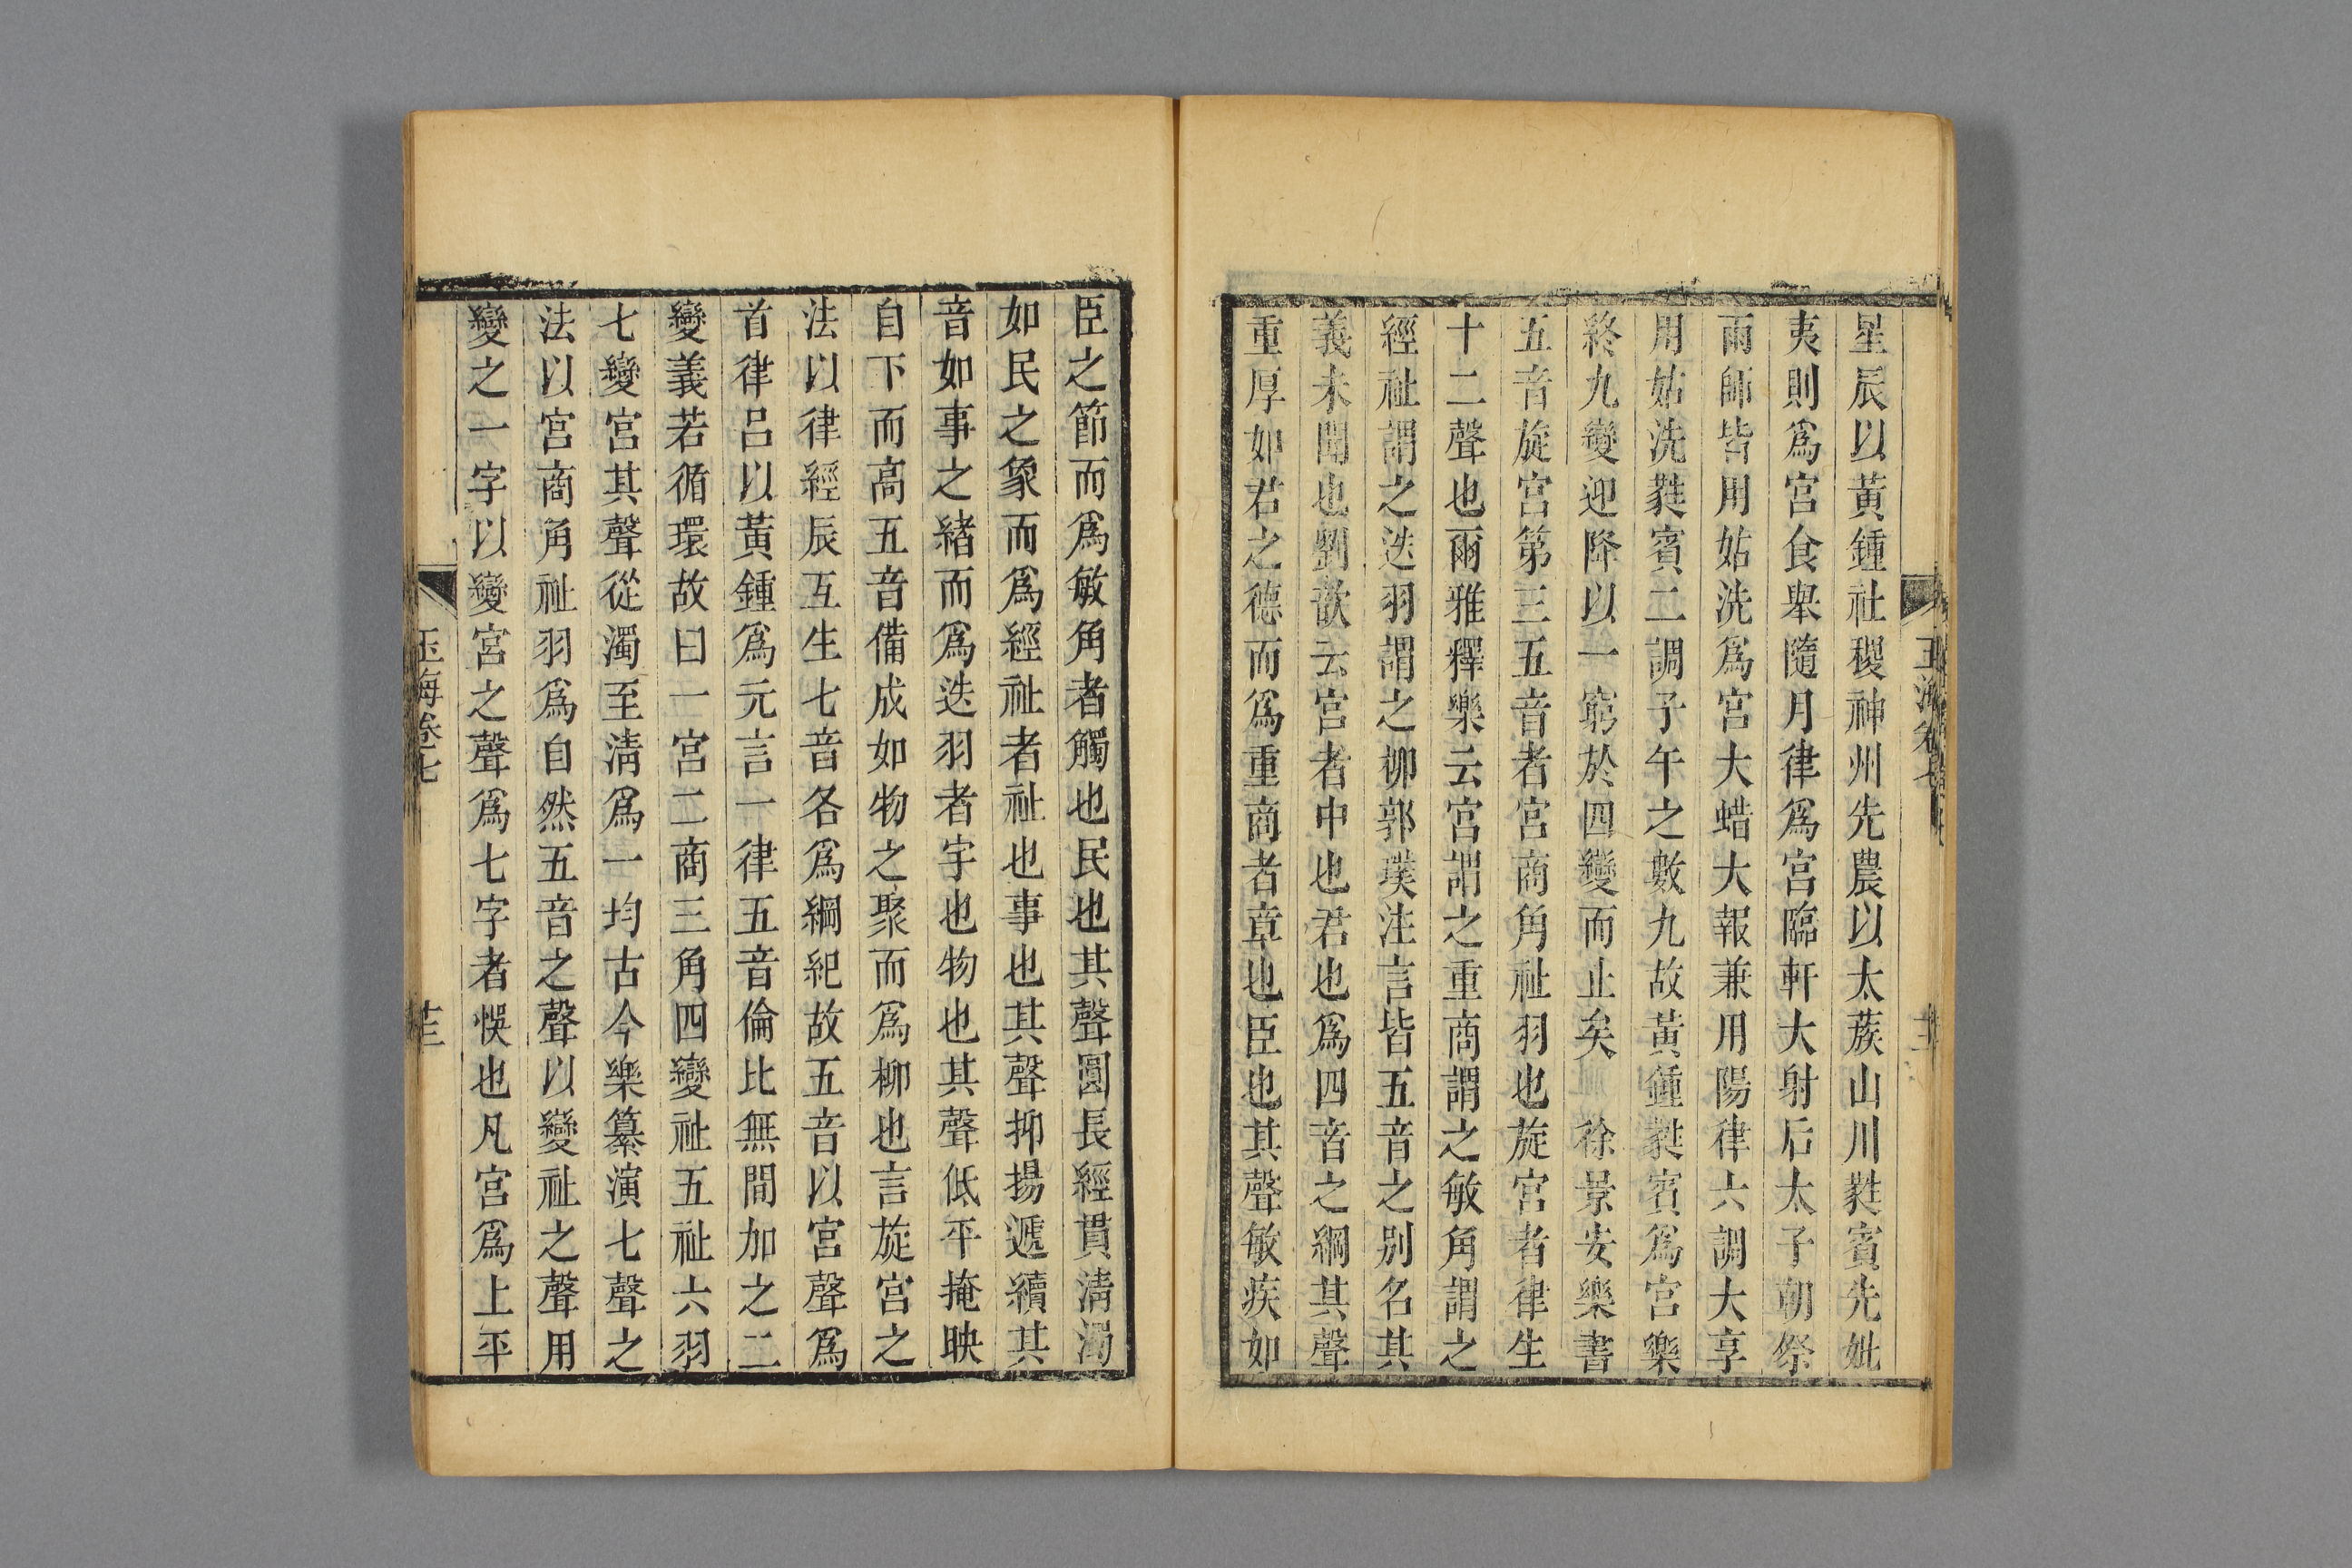 星辰以黃鍾社稷神州先農以太蔟山川蕤賓先妣
夷則爲宮食舉隨月律爲宮臨軒大射后太子朝祭
雨師皆用姑洗爲宮大蜡大報兼用陽律六調大享
用姑洗蕤賓二調子午之數九故黃鍾蕤賓爲宮樂
終九變迎降以一窮於四變而止矣 徐景安樂書
五音旋宮第三五音者宮商角祉羽也旋宮者律生
十二聲也爾雅釋樂云宮謂之重商謂之敏角謂之
經祉謂之迭羽謂之柳郭璞注言皆五音之別名其
義未聞也劉歆云宮者中也君也爲四音之綱其聲
重厚如君之德而爲重商者章也臣也其聲敏疾如
臣之節而爲敏角者觸也民也其聲圓長經貫淸濁
如民之象而爲經祉者祉也事也其聲抑揚遞續其
音如事之緒而爲迭羽者宇也物也其聲低平掩映
自下而高五音備成如物之聚而爲柳也言旋宮之
法以律經辰互生七音各爲綱紀故五音以宮聲爲
首律呂以黃鍾爲元言一律五音倫比無間加之二
變義若循環故曰一宮二商三角四變祉五祉六羽
七變宮其聲從濁至淸爲一均古今樂纂演七聲之
法以宮商角祉羽爲自然五音之聲以變祉之聲用
變之一字以變宮之聲爲七字者悞也凡宮爲上平
玉海卷七